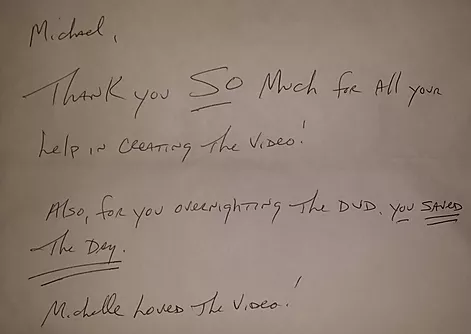 Michael,
Thank you So Much for All your
help in creating the Video!
Also, for you overnighting the DVD. you saved
the Day.
Michelle Loved the Video!